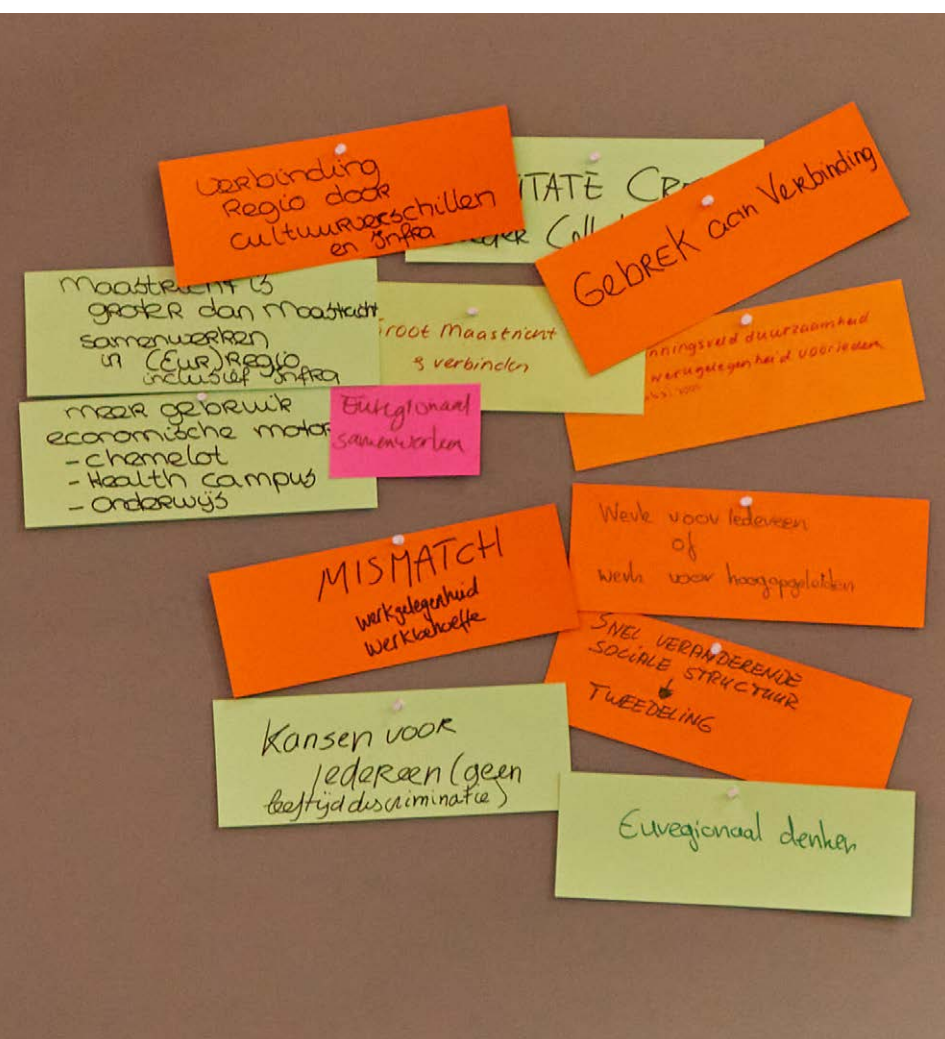 Verbinding
Regio door
cultuurverschillen
en infra
TATE CR
GEBREK aan Verbinding
Maastricht is
groter dan Maastricht
samenwerken
in (Eur)Regio
inclusief infra
root Maastricht
verbinden
nningsveld duurzaamheid
werkgelegenheid voor ieder
meer gebruik
economische motor
- chemelot
- Health campus
- Onderwijs
Euregionaal
samenwerken
MISMATCH
werkgelegenheid
werkbehoefte
Werk voor Iedereen
of
werk voor hoogopgeleiden
SNEL VERANDERENDE
SOCIALE STRUCTUUR
↓
TWEEDELING
Kansen voor
iedereen (geen
leeftijd discriminatie)
Euregionaal denken